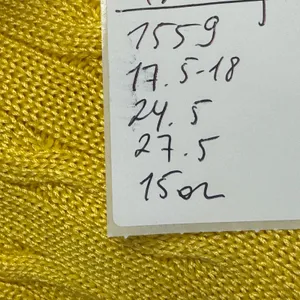 1559
17.5-18
24.5
27.5
150г